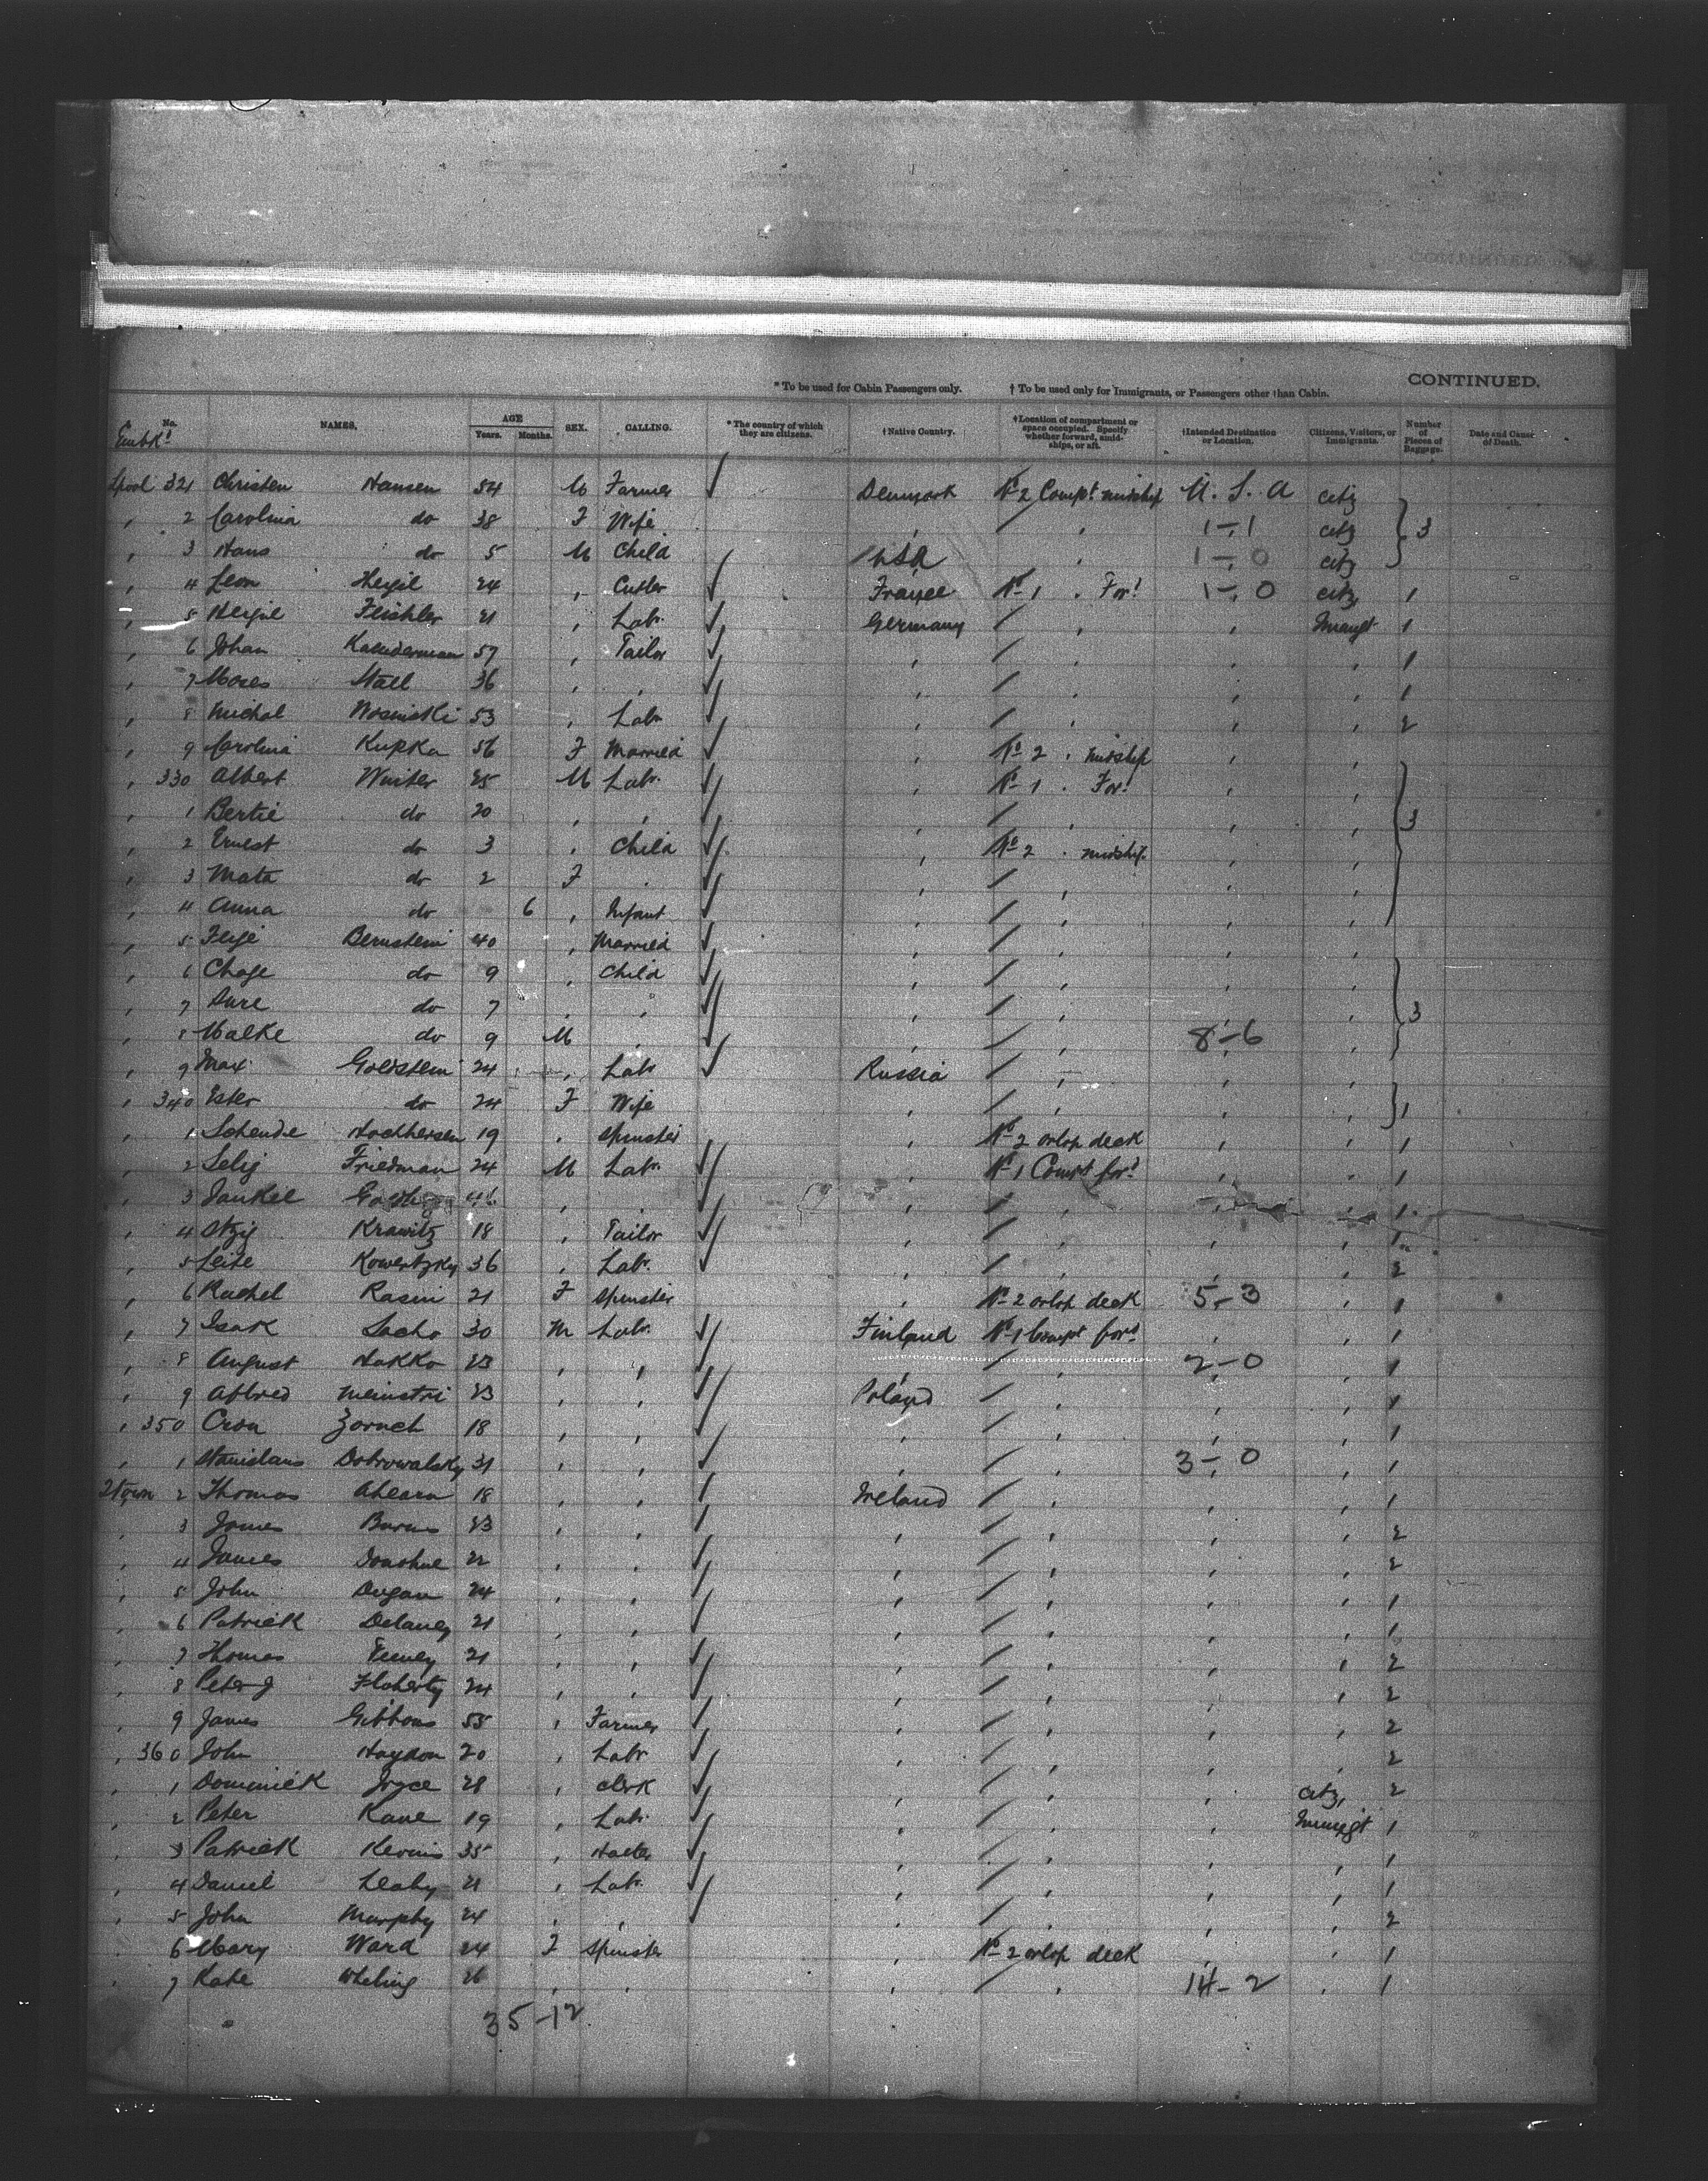 CONTINUED.
* To be used for Cabin Passengers only. † To be used only for Immigrants, or Passengers other than Cabin.
No. NAMES. AGE Years. Months. SEX. CALLING. * The country of which they are citizens. † Native Country. † Location of compartment or space occupied. Specify whether forward, amidships, or aft. † Intended Destination or Location. Citizens, Visitors, or Immigrants. Number of Pieces of Baggage. Date and Cause of Death.
Embkd
Lpool 321 Christen Hansen 54 M Farmer Denmark No 2 Compt midship U. S. A citz
2 Carolina do 38 F Wife 1-1 citz 3
3 Hans do 5 M Child USA 1-0 citz
4 Leon 24 Cutler France No 1 Ford 1-0 citz 1
5 Feichler 21 Labr Germany Immigt 1
6 Johan 57 Tailor 1
7 Moses Stall 36 1
8 Michal Wosinski 53 Labr 2
9 Carolina Kupka 56 F Married No 2 midship
330 Albert Winter 25 M Labr No 1 For
1 Bertie do 20 3
2 Ernest do 3 Child No 2 midship
3 Mata do 2 F
4 Anna do 6 Infant
5 Feige Bernstein 40 Married
6 Chase do 9 Child
7 Dure do 7 3
8 Malke do 9 M 8-6
9 Max Goldstein 24 Labr Russia
340 Ester do 24 F Wife 1
1 19 Spinster No 2 orlop deck 1
2 Selig Friedman 24 M Labr No 1 Compt ford 1
3 Jankel 1
4 Itzig Krawitz 18 Tailor 1
5 Leite 36 Labr 2
6 Rachel Rasin 21 F Spinster No 2 orlop deck 5-3 1
7 Isak Sacho 30 M Labr Finland No 1 Compt ford 1
8 August Hakko 23 2-0 1
9 Alfred 23 Poland 1
350 Zornch 18 1
1 Stanislaus Dobrowalsky 31 3-0 1
2town 2 Thomas Ahearn 18 Ireland 1
3 James Burns 23 2
4 James Donohue 22 2
5 John Dugan 24 1
6 Patrick Delaney 21 1
7 Thomas Feeney 21 2
8 Peter J Flaherty 24 2
9 James Gibbons 55 Farmer 2
360 John Haydon 20 Labr 2
1 Dominick Joyce 28 Clerk citz 2
2 Peter Kane 19 Labr Immigt 1
3 Patrick Kevins 35 1
4 Daniel Leahy 21 Labr 1
5 John Murphy 24 2
6 Mary Ward 24 F Spinster No 2 orlop deck 1
7 Kate Wheling 26 14-2 1
35-12